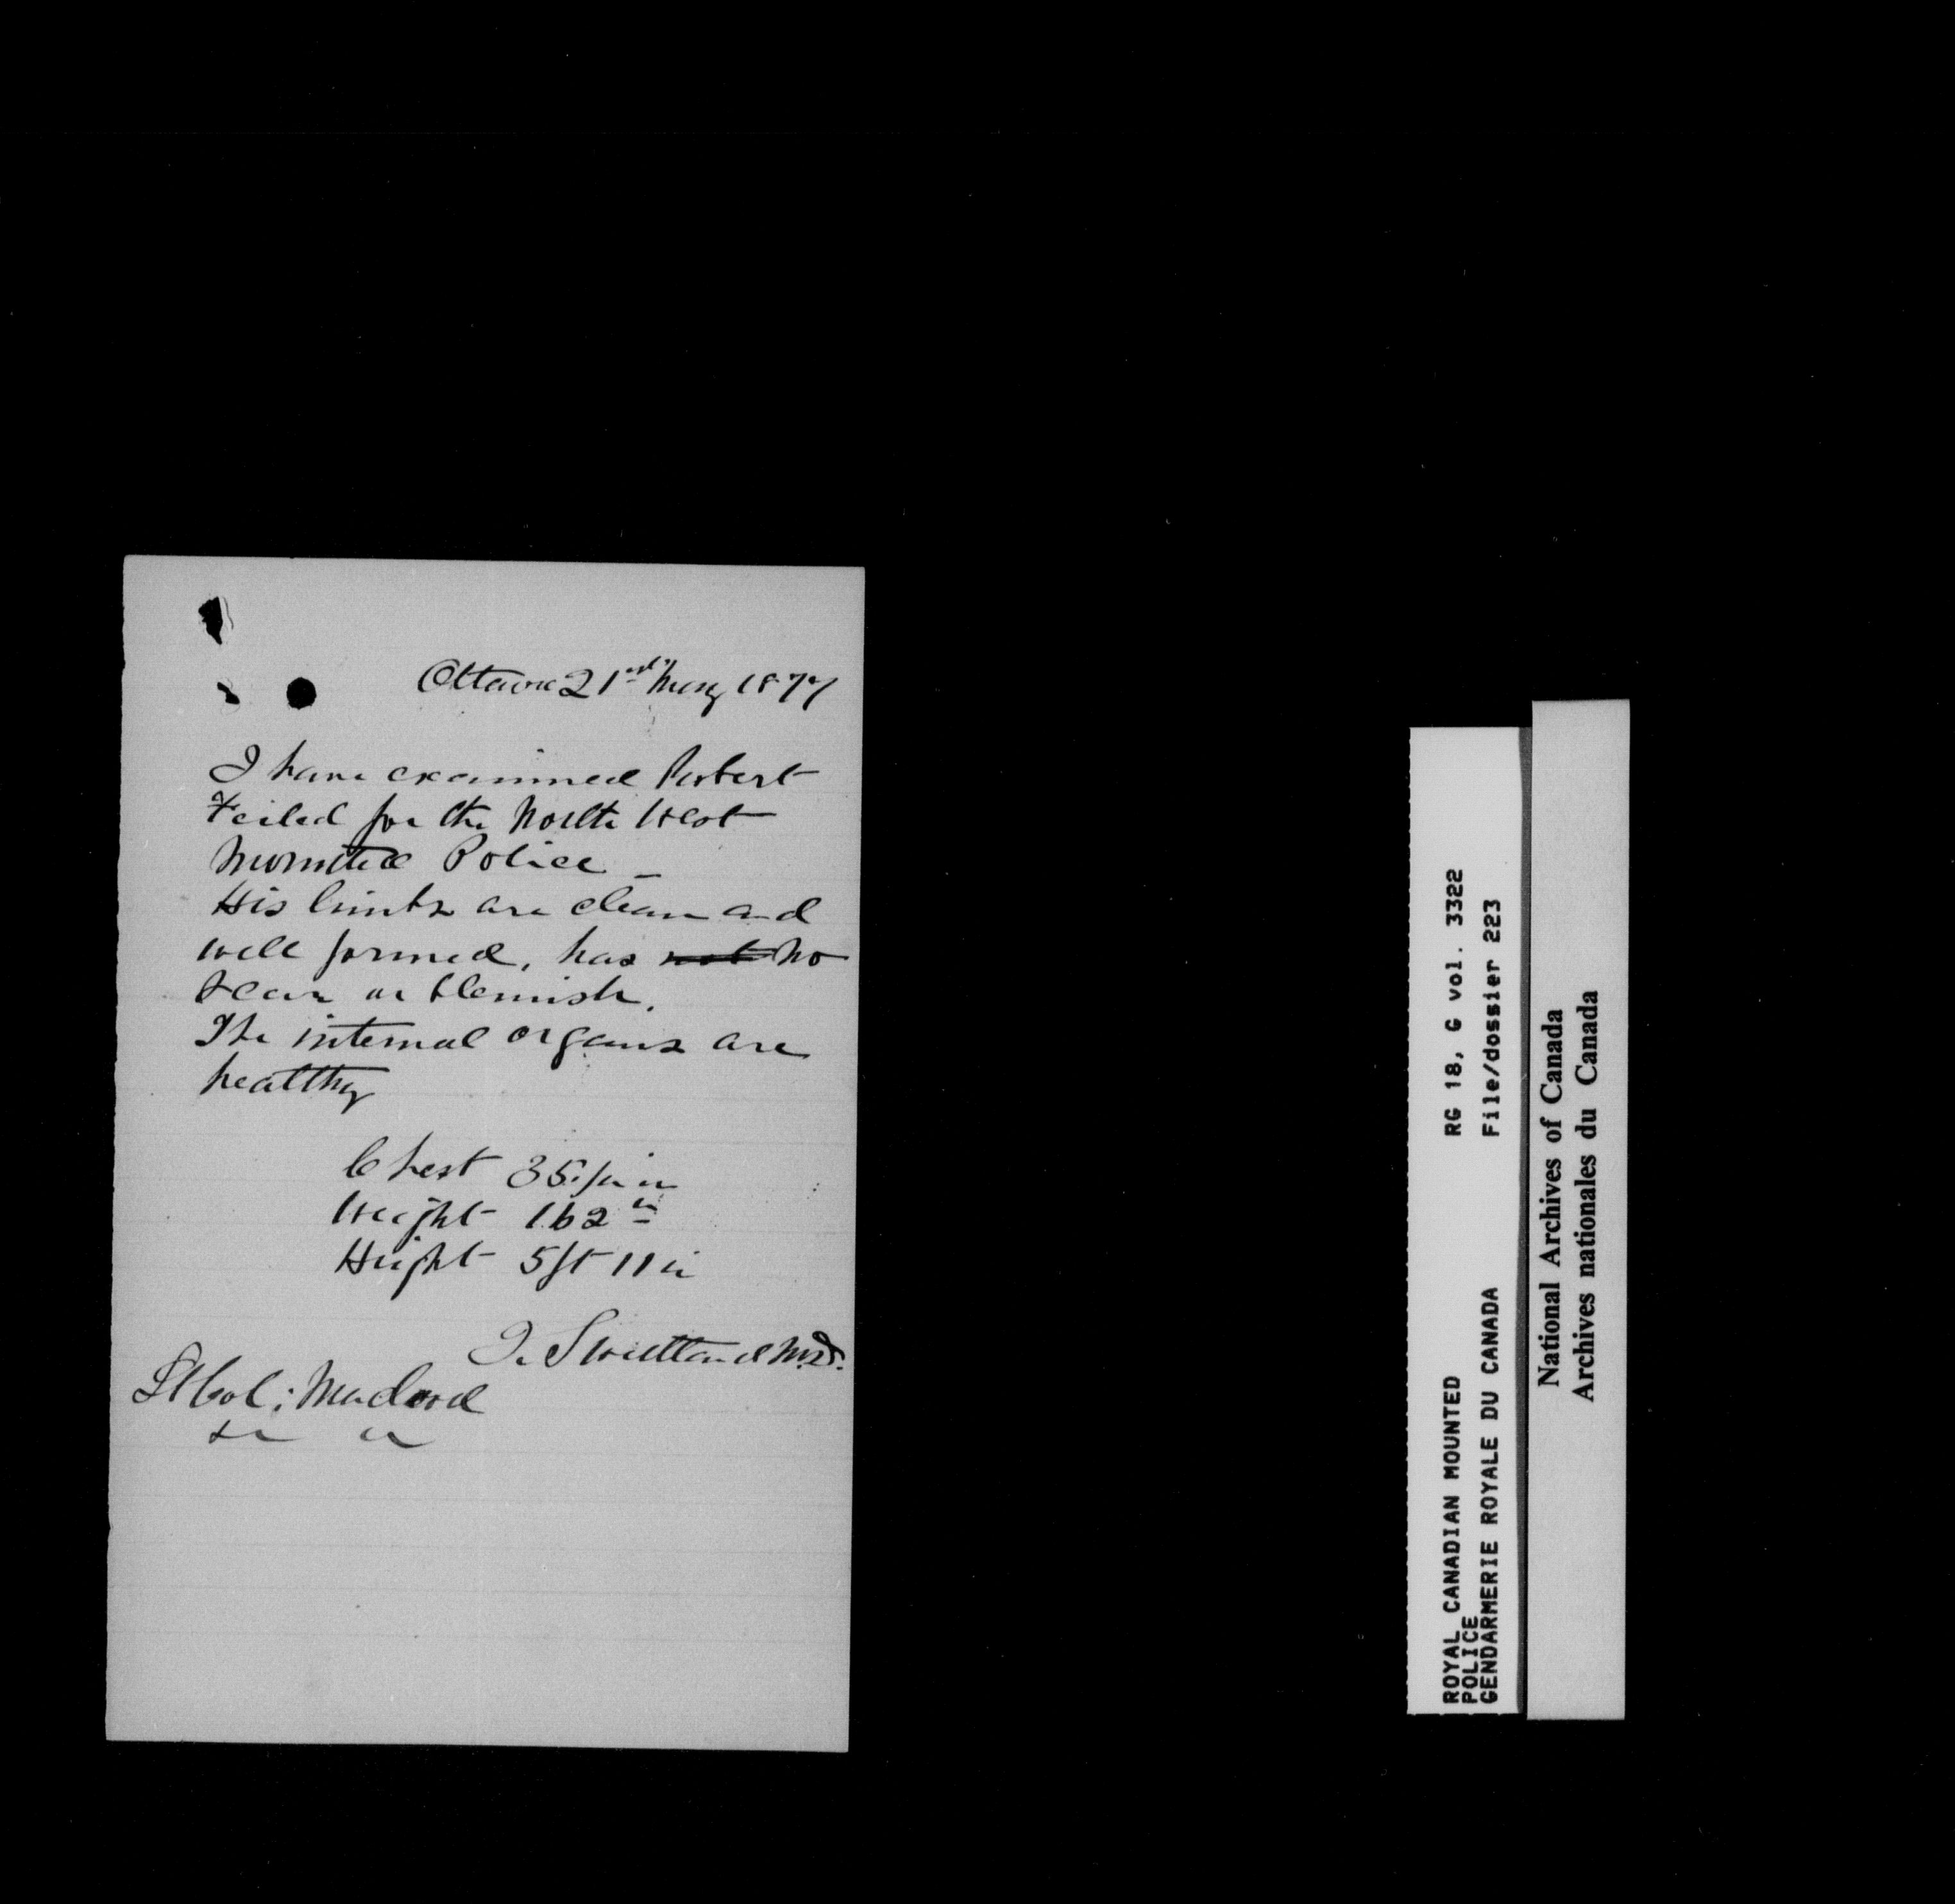 Ottawa 21st May 1877
I have examined Robert
for the North West
Mounted Police _
His limbs are clean and
well formed, has not no
scar or blemish.
The internal organs are
healthy
Chest 35 in
Weight 162
Height 5ft 11 in
M.D.
Lt Col;
ROYAL CANADIAN MOUNTED
POLICE
GENDARMERIE ROYALE DU CANADA
RG 18, G vol. 3322
File/dossier 223
National Archives of Canada
Archives nationales du Canada